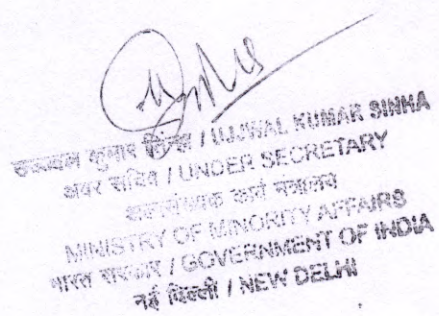 उज्जवल कुमार सिन्हा / UJJWAL KUMAR SINHA
अवर सचिव / UNDER SECRETARY
अल्पसंख्यक कार्य मंत्रालय
MINISTRY OF MINORITY AFFAIRS
भारत सरकार / GOVERNMENT OF INDIA
नई दिल्ली / NEW DELHI